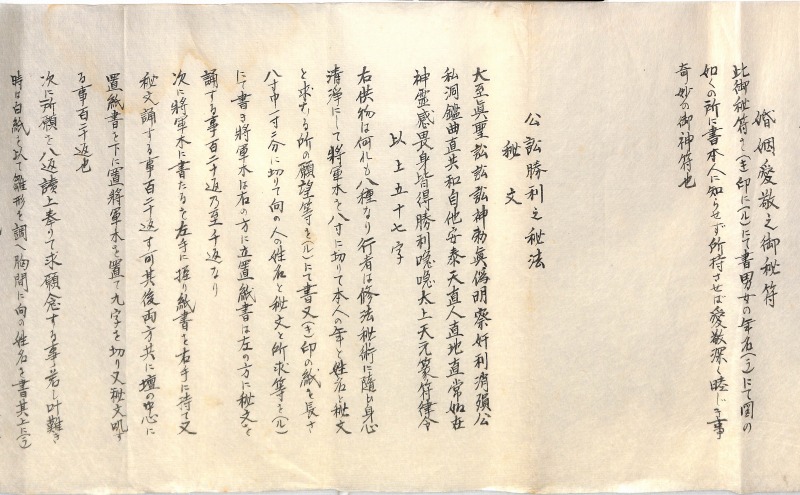 婚姻愛敬之御秘符
此御秘符を(キ)印に(ル)にて書男女の年名(ラ)にて図の
如くの所に書本人に知らせず所持させば愛敬深く睦じき事
奇妙の御神符也
公訟勝利之秘法
秘文
大至眞聖訟訟訟神勅眞偽明察奸利消殞公
私洞鑑曲直共和自他安泰天直人直地直常如在
神霊感畏身皆得勝利喼喼太上天元篆符律令
以上五十七字
右供物は何れも八種なり行者は修法秘術に随ひ身心
清浄にして將軍木を八寸に切りて本人の年と姓名と秘文
と求むる所の願望等を(ル)にて書又(キ)印の紙を長さ
八寸巾一寸二分に切りて向の人の姓名と秘文と所求等を(ル)
にて書き將軍木は右の方に立置紙書は左の方に秘文を
誦する事百二十返乃至千返なり
次に將軍木に書たるを左手に握り紙書を右手に持て又
秘文誦する事百二十返す可其後両方共に壇の中心に
置紙書を下に置將軍木を置て九字を切り又秘文呪す
る事百二十返也
次に所願を八返讀上奉りて求願念する事若し叶難き
時は白紙を以て雛形を調へ胸間に向の姓名を書其上に(ラ)